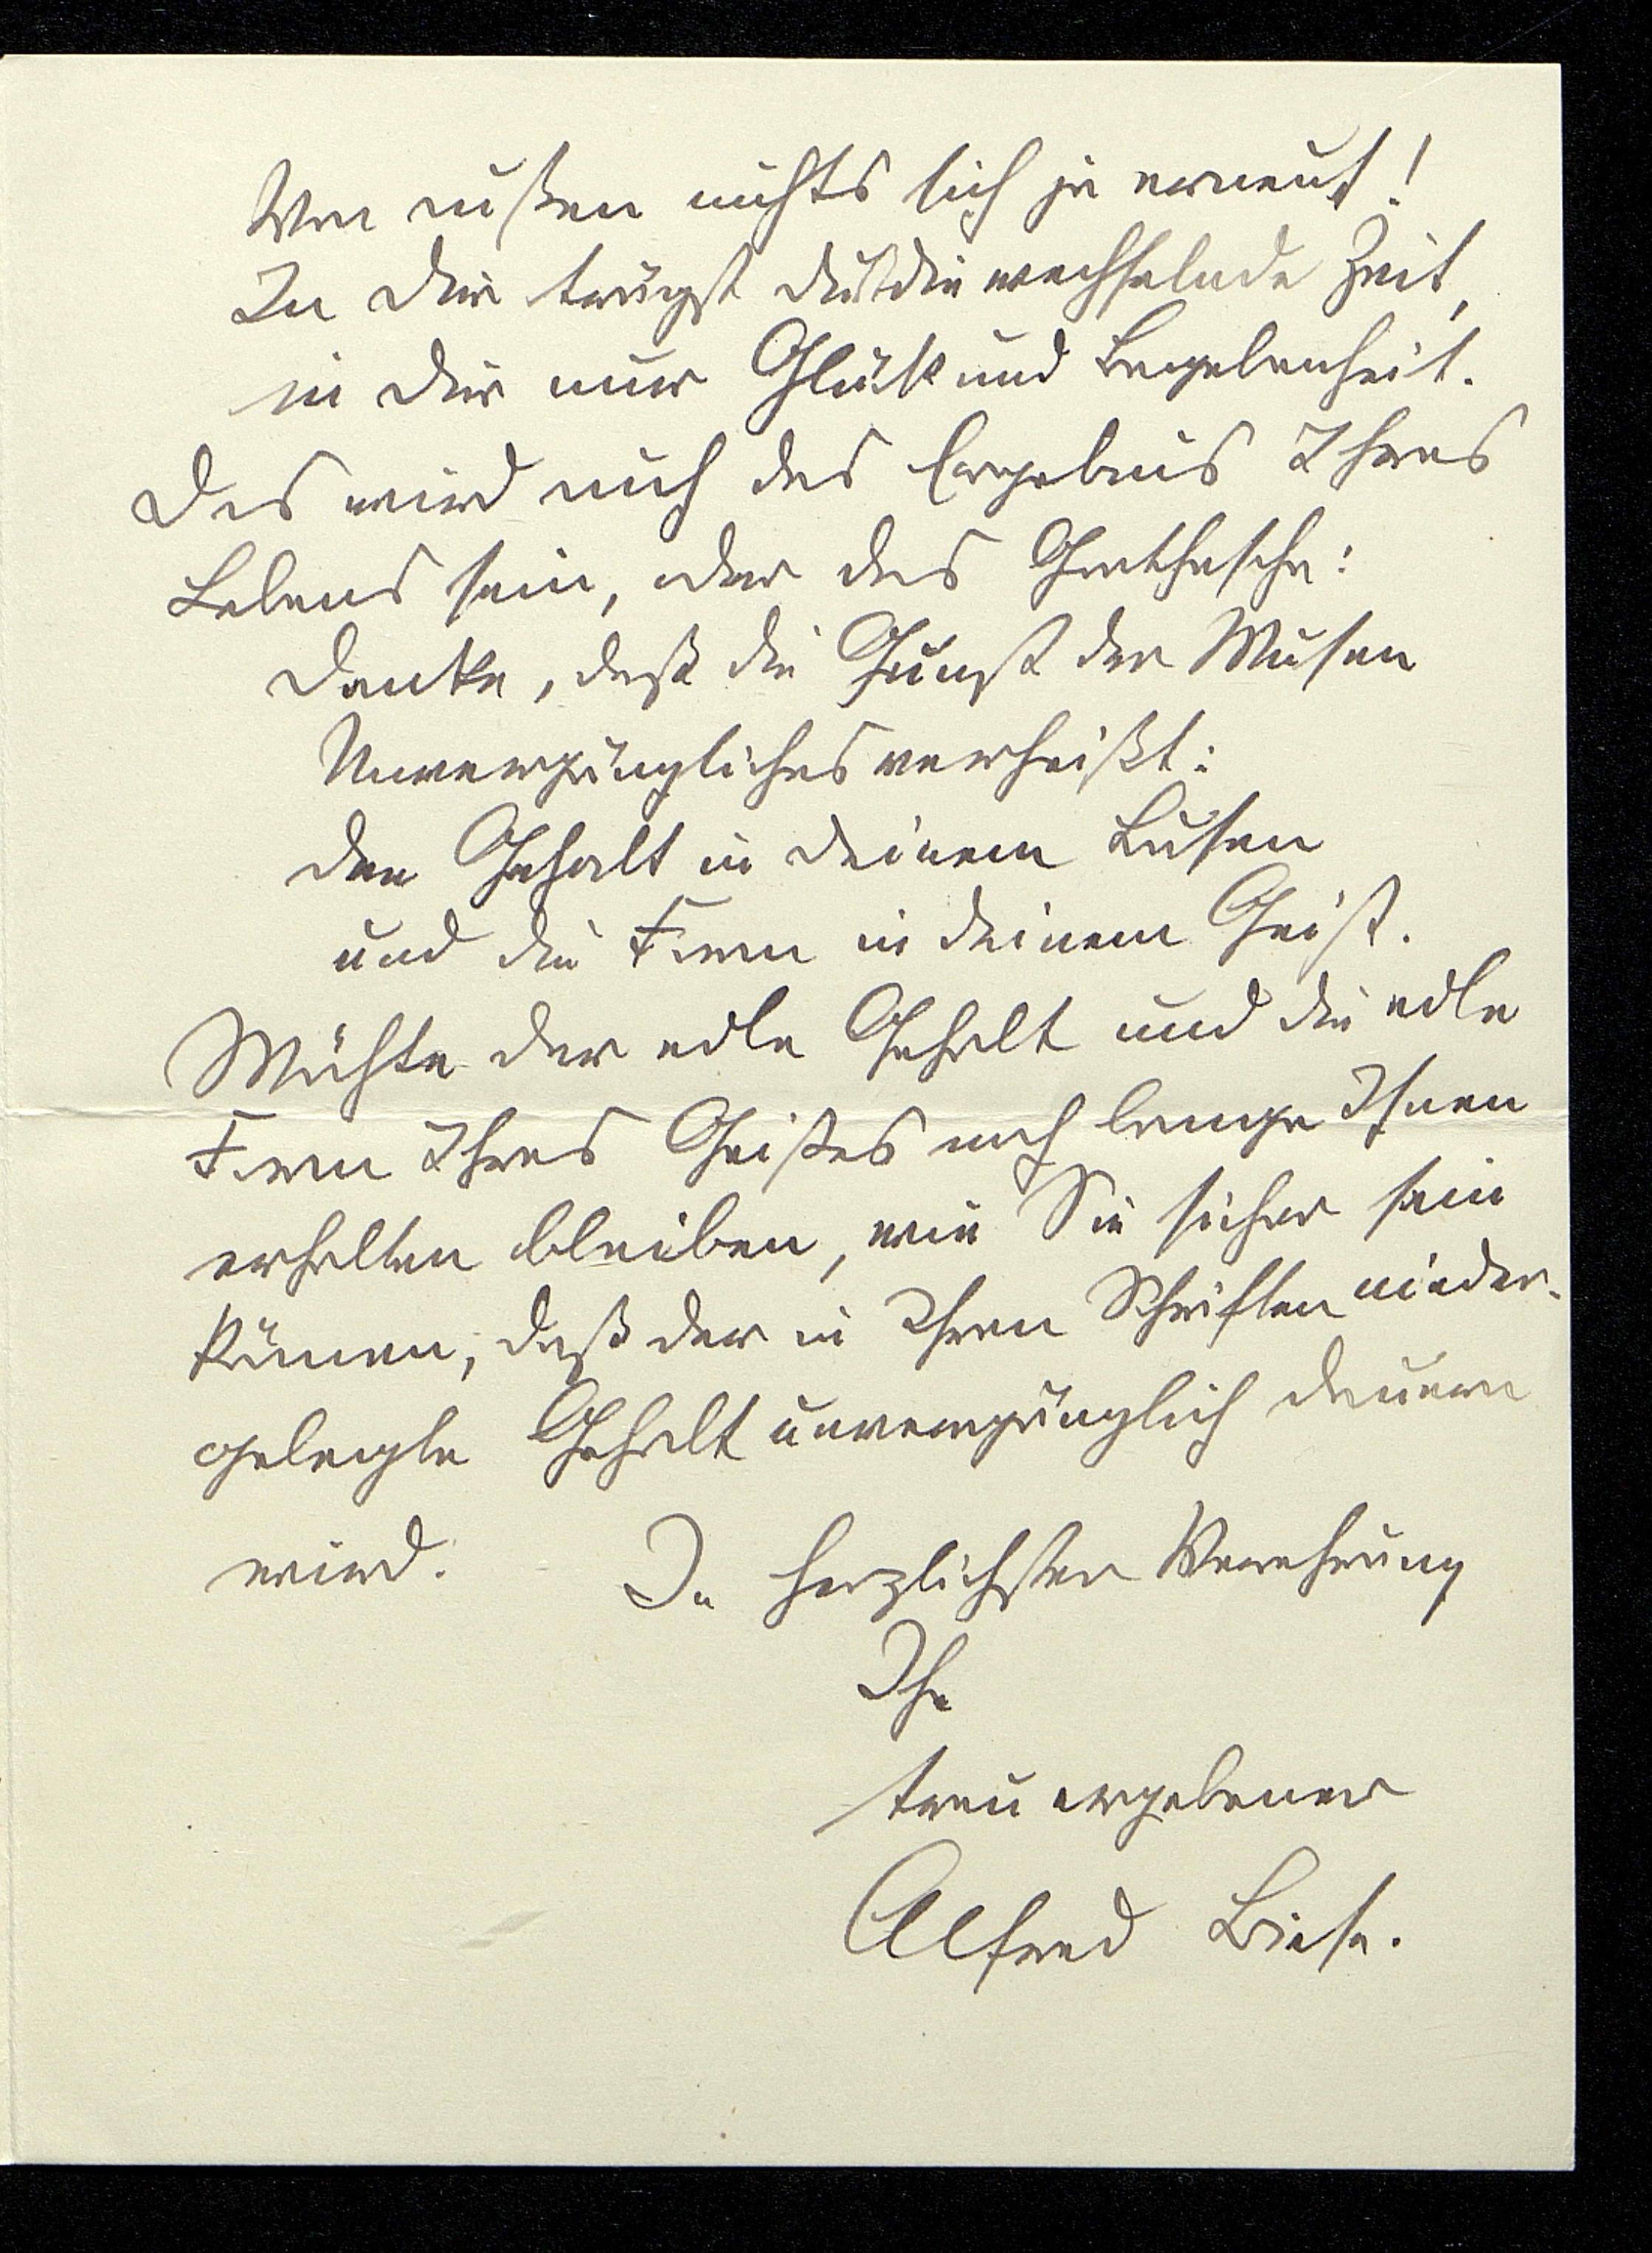 Von außen nichts sich je erneut!
In Dir trägst du die wechselnde Zeit,
in Dir nur Glück und Begebenheit.
Das wird auch das Ergebnis Ihres
Lebens sein, oder das Goethesche:
Danke, daß die Gunst der Musen
Unvergängliches verheißt:
den Gehalt in deinem Busen
und die Form in deinem Geist.
Möchte der edle Gehalt und die edle
Form Ihres Geistes noch lange Ihnen
erhalten bleiben, wie Sie sicher sein
können, daß der in Ihren Schriften nieder-
gelegte Gehalt unvergänglich dauern
wird. In herzlichster Verehrung
Ihr
treu ergebener
Alfred Biese.